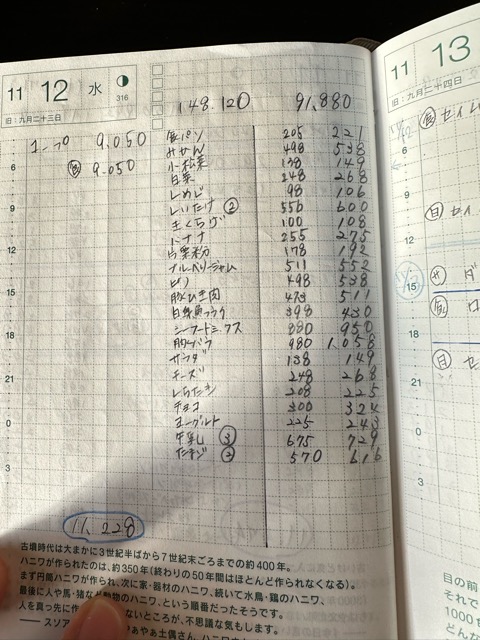 11 12 水 316
旧:九月二十三日
148.120 91,880
コープ 9.050
9.050
食パン 205 221
みかん 498 538
小松菜 138 149
白菜 248 268
しめじ 98 106
しいたけ ② 556 600
生くらげ 100 108
バナナ 255 275
片栗粉 178 192
ブルーベリージャム 511 552
ピノ 498 538
豚ひき肉 473 511
398 430
シーフードミックス 880 950
豚バラ 980 1,058
サラダ 138 149
チーズ 248 268
しらたき 208 225
チョコ 300 324
ヨーグルト 225 243
牛乳 ③ 675 729
② 570 616
6
9
12
15
18
21
0
3
11,228
古墳時代は大まかに3世紀半ばから7世紀末ごろまでの約400年。
ハニワが作られたのは、約350年(終わりの50年間はほとんど作られなくなる)。
まず円筒ハニワが作られ、次に家・器材のハニワ、続いて水鳥・鶏のハニワ、
最後に人や馬・猪など動物のハニワ、という順番だったそうです。
人を真っ先に作 ないところが、不思議な気もします。
11 13
旧:九月二十四日
6
9
12
15
18
21
0
3
目の前
それで
1000